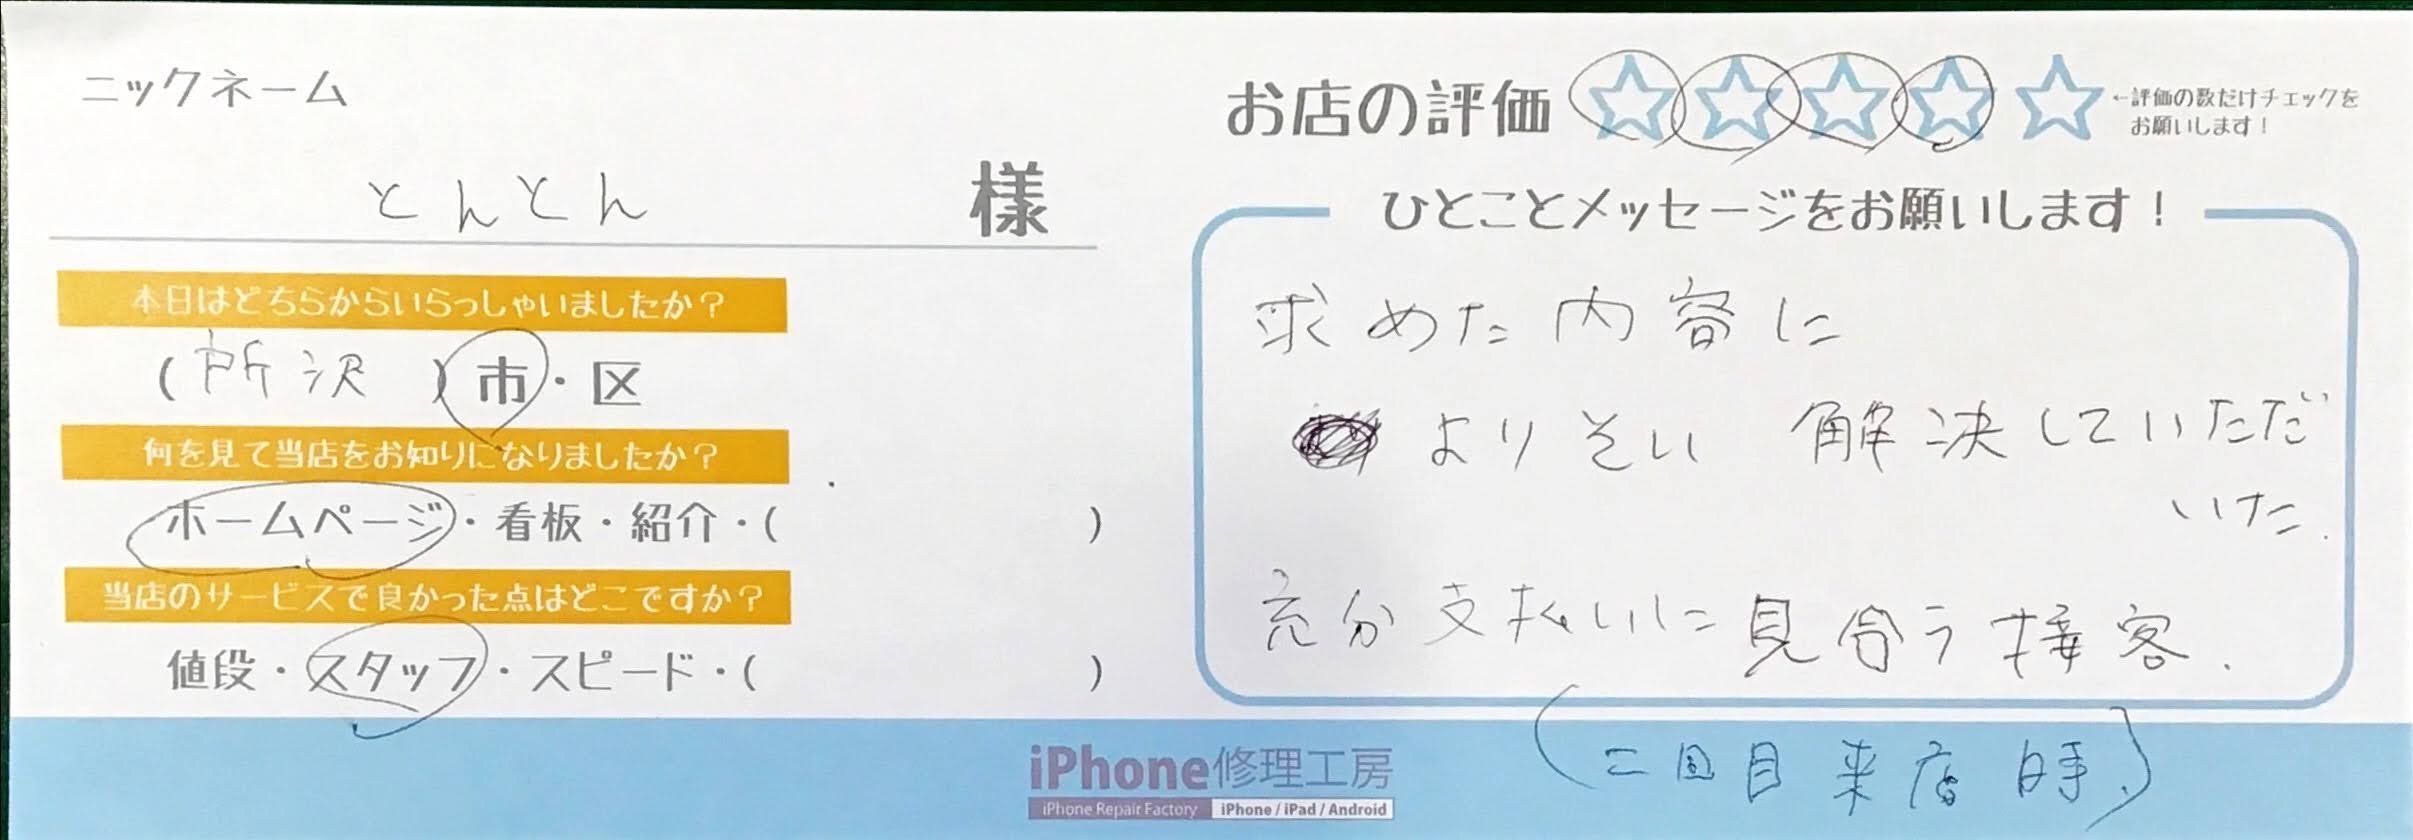 ニックネーム
とんとん 様
本日はどちらからいらっしゃいましたか？
(所沢)市・区
何を見て当店をお知りになりましたか？
ホームページ・看板・紹介・( )
当店のサービスで良かった点はどこですか？
値段・スタッフ・スピード・( )
お店の評価
←評価の数だけチェックを
お願いします！
ひとことメッセージをお願いします！
求めた内容に
よりそい 解決していただ
いた.
充分支払いに見合う接客.
(二回目来店時.)
iPhone修理工房
iPhone Repair Factory iPhone / iPad / Android